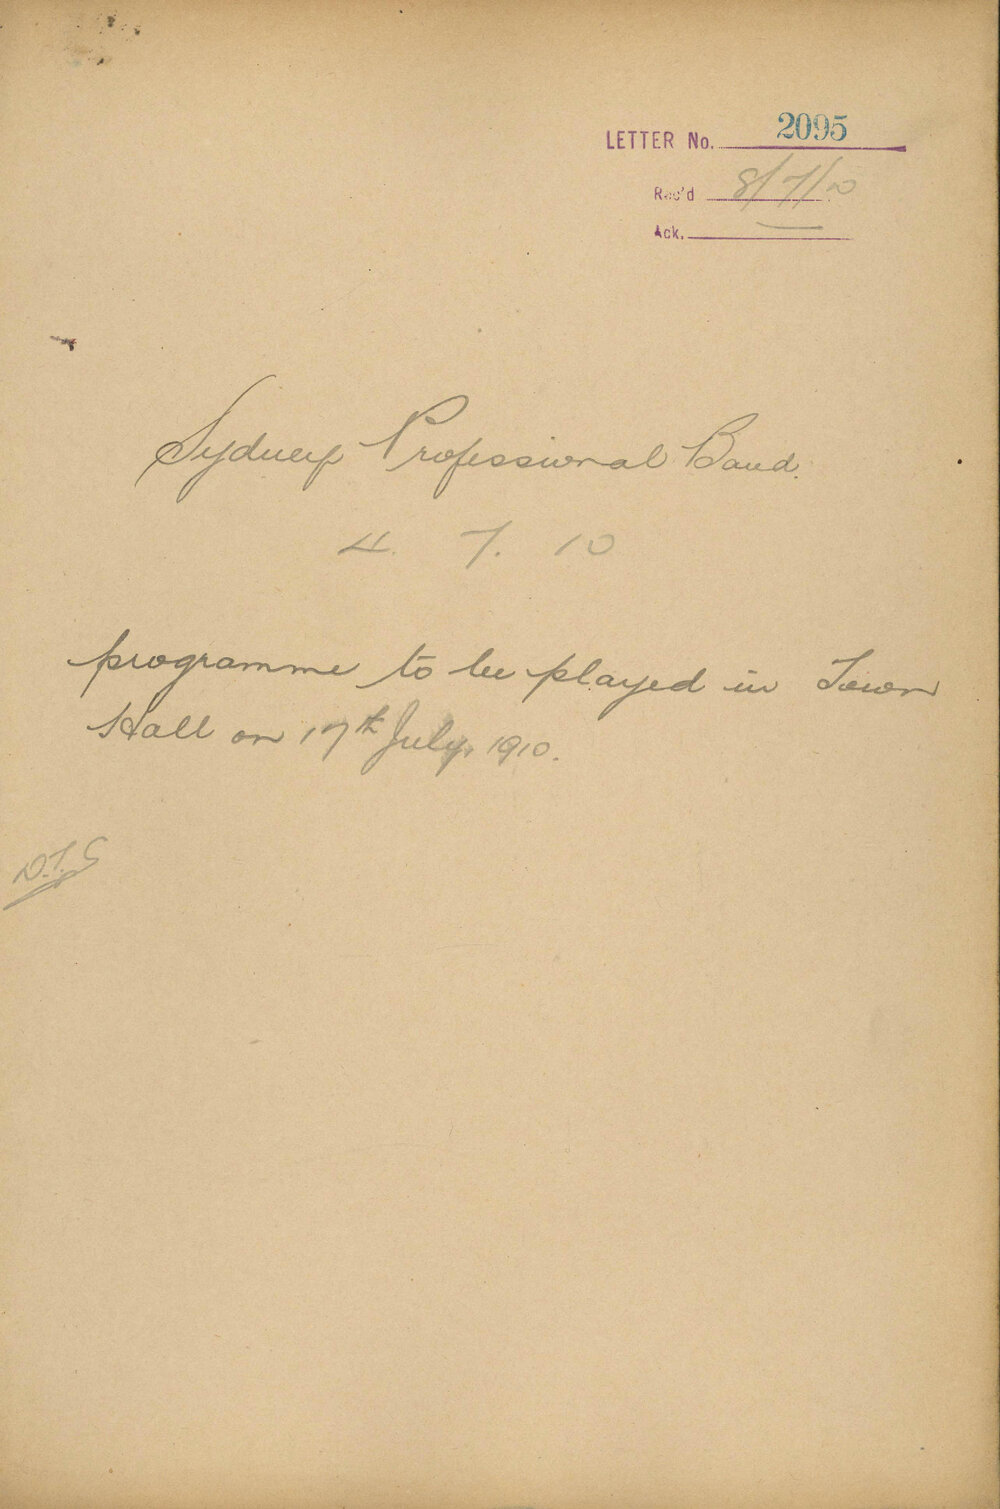 LETTER No. 2095
Rec'd 8/7/10
Ack.
Sydney Professional Band.
4. 7. 10
programme to be played in Town
Hall on 17th July, 1910.